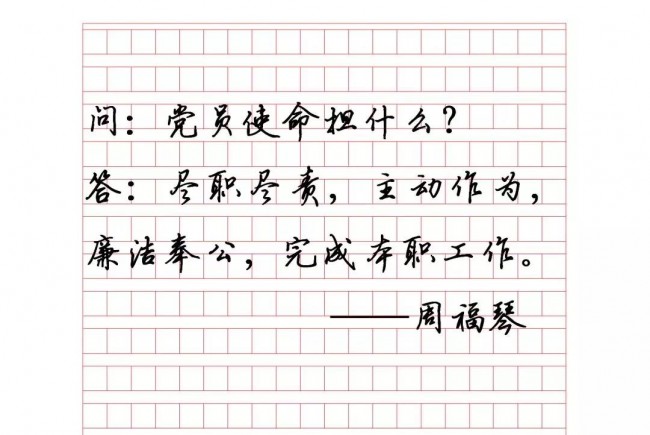 问：党员使命担什么？
答：尽职尽责，主动作为，
廉洁奉公，完成本职工作。
——周福琴